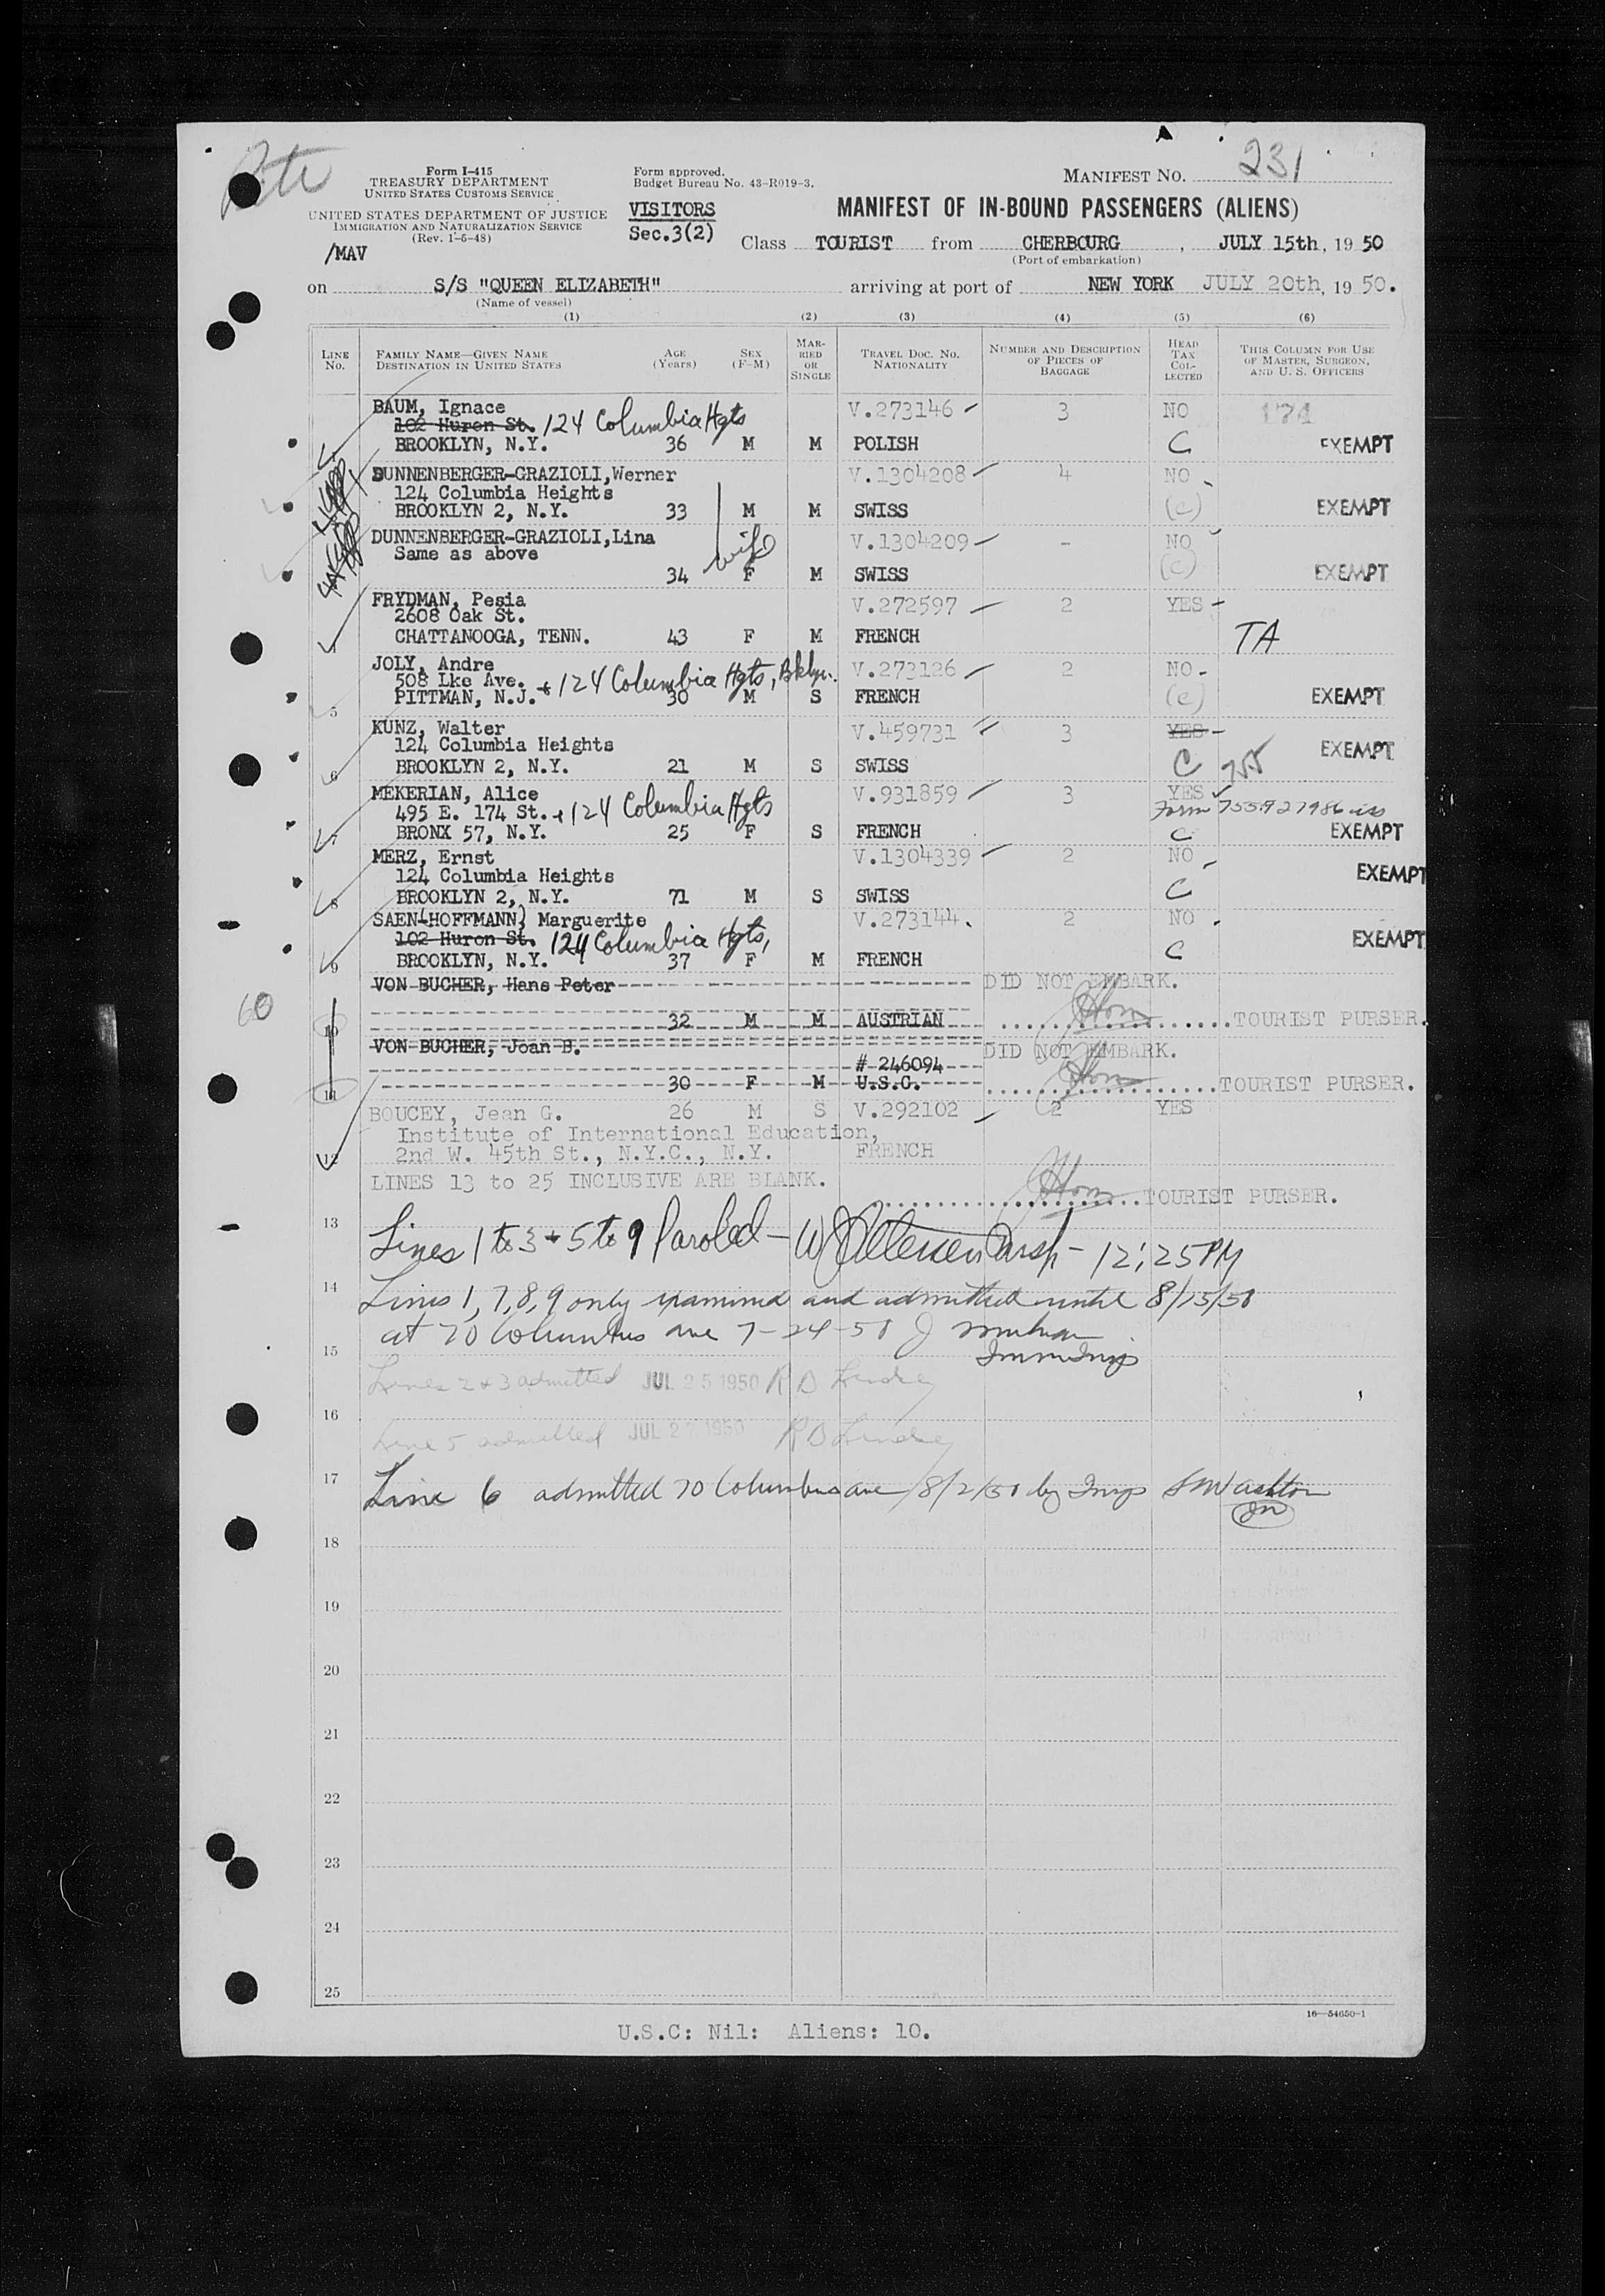 231
Form I-415
TREASURY DEPARTMENT
UNITED STATES CUSTOMS SERVICE
Form approved.
Budget Bureau No. 43-R019-3.
MANIFEST NO.
UNITED STATES DEPARTMENT OF JUSTICE
IMMIGRATION AND NATURALIZATION SERVICE
(Rev. 1-6-48)
VISITORS
Sec.3(2)
MANIFEST OF IN-BOUND PASSENGERS (ALIENS)
/MAV
Class TOURIST from CHERBOURG, JULY 15th, 19 50
(Port of embarkation)
on S/S "QUEEN ELIZABETH" arriving at port of NEW YORK JULY 20th, 19 50.
(Name of vessel)
(1) (2) (3) (4) (5) (6)
LINE No. FAMILY NAME—GIVEN NAME DESTINATION IN UNITED STATES AGE (Years) SEX (F-M) MARRIED OR SINGLE TRAVEL DOC. NO. NATIONALITY NUMBER AND DESCRIPTION OF PIECES OF BAGGAGE HEAD TAX COLLECTED THIS COLUMN FOR USE OF MASTER, SURGEON, AND U. S. OFFICERS
BAUM, Ignace V.273146 3 NO 174
102 Huron St. 124 Columbia Hgts
BROOKLYN, N.Y. 36 M M POLISH C EXEMPT
DUNNENBERGER-GRAZIOLI,Werner V.1304208 4 NO
124 Columbia Heights
BROOKLYN 2, N.Y. 33 M M SWISS (c) EXEMPT
DUNNENBERGER-GRAZIOLI,Lina V.1304209 - NO
Same as above wife
34 F M SWISS (c) EXEMPT
FRYDMAN, Pesia V.272597 2 YES
2608 Oak St.
CHATTANOOGA, TENN. 43 F M FRENCH TA
JOLY, Andre V.273126 2 NO
508 Lke Ave. + 124 Columbia Hgts, Bklyn.
5 PITTMAN, N.J. 30 M S FRENCH (c) EXEMPT
KUNZ, Walter V.459731 3 YES
124 Columbia Heights
6 BROOKLYN 2, N.Y. 21 M S SWISS C 755 EXEMPT
MEKERIAN, Alice V.931859 3 YES
495 E. 174 St. + 124 Columbia Hgts Form 755
7 BRONX 57, N.Y. 25 F S FRENCH C EXEMPT
MERZ, Ernst V.1304339 2 NO
124 Columbia Heights EXEMPT
8 BROOKLYN 2, N.Y. 71 M S SWISS C
SAEN(HOFFMANN) Marguerite V.273144. 2 NO
102 Huron St. 124 Columbia Hgts, EXEMPT
9 BROOKLYN, N.Y. 37 F M FRENCH C
VON BUCHER, Hans Peter DID NOT EMBARK.
60
10 32 M M AUSTRIAN TOURIST PURSER.
VON BUCHER, Joan B. DID NOT EMBARK.
# 246094
11 30 F M U.S.C. TOURIST PURSER.
BOUCEY, Jean G. 26 M S V.292102 2 YES
Institute of International Education,
12 2nd W. 45th St., N.Y.C., N.Y. FRENCH
LINES 13 to 25 INCLUSIVE ARE BLANK. TOURIST PURSER.
13 Lines 1 to 3 + 5 to 9 Paroled - 12:25 PM
14 Lines 1, 7, 8, 9 only examined and admitted until 8/15/50
at 70 Columbus ave 7-24-50
15 Immig Insp
Lines 2 + 3 admitted JUL 25 1950 R D Lindsey
16
Line 5 admitted JUL 27 1950 R D Lindsey
17 Line 6 admitted 70 Columbus ave 8/2/50 by Insp S M Ashton
18
19
20
21
22
23
24
25
16—54650-1
U.S.C: Nil: Aliens: 10.